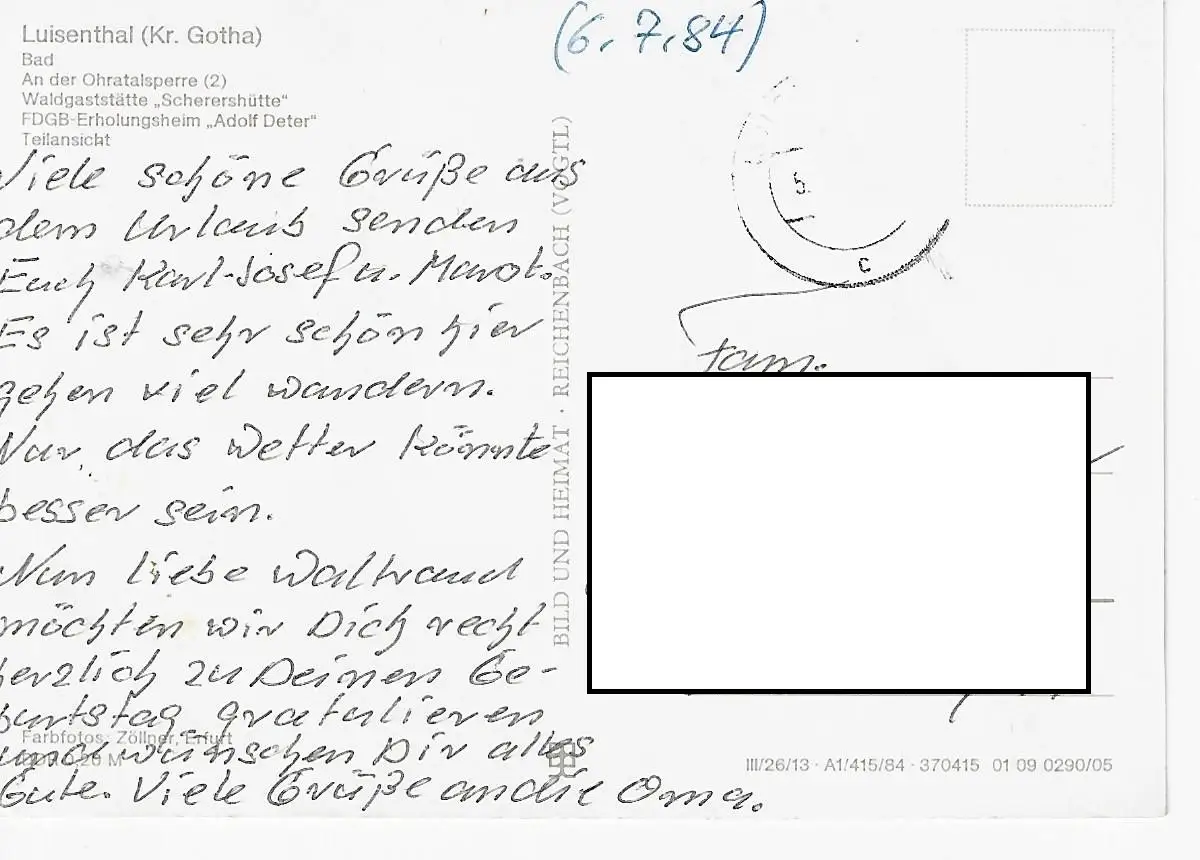 Luisenthal (Kr. Gotha)
Bad
An der Ohratalsperre (2)
Waldgaststätte „Scherershütte“
FDGB-Erholungsheim „Adolf Deter“
Teilansicht
(6.7.84)
Viele schöne Grüße aus
dem Urlaub senden
Euch Karl-Josef u. Margt.
Es ist sehr schön hier
gehen viel wandern.
Nur das Wetter könnte
besser sein.
Nun liebe Waltraud
möchten wir Dich recht
herzlich zu Deinen Ge-
burtstag gratulieren
und wünschen Dir alles
Gute. Viele Grüße an die Oma.
Farbfotos: Zöllner, Erfurt
BILD UND HEIMAT · REICHENBACH (VOGTL)
5
c
Fam.
III/26/13 · A1/415/84 · 370415 01 09 0290/05